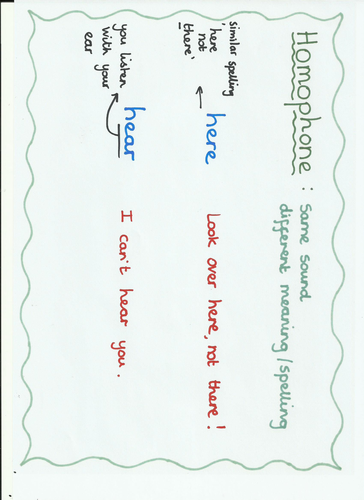 Homophone : same sound
different meaning/spelling
similar spelling
'here
not
there'
here
Look over here, not there!
hear
I can't hear you.
you listen
with your
ear